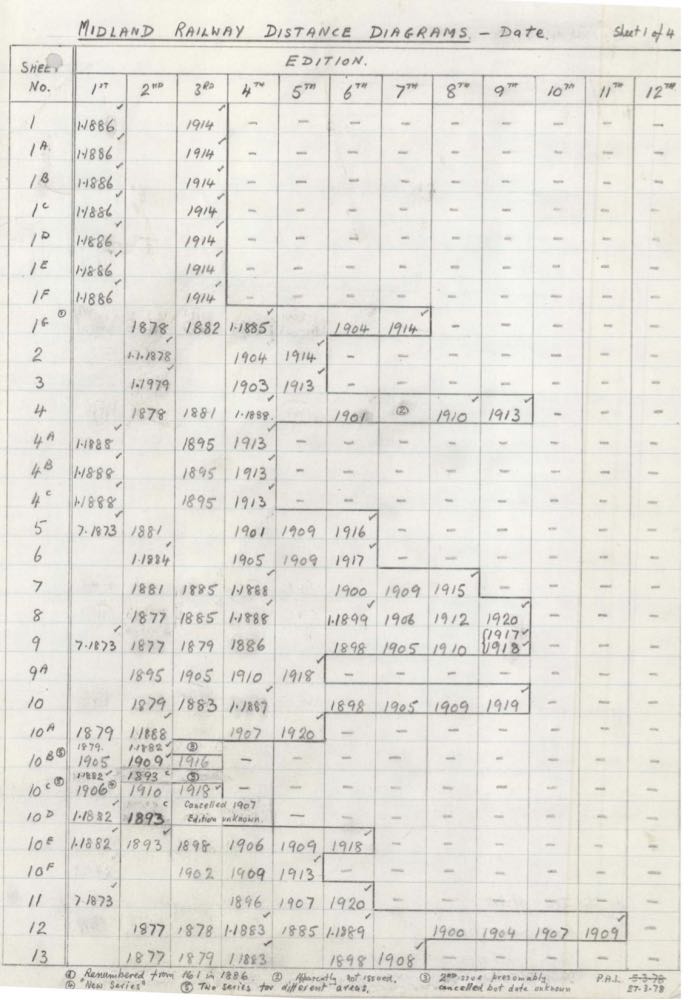 MIDLAND RAILWAY DISTANCE DIAGRAMS. – Date. Sheet 1 of 4
SHEET No. EDITION.
1ST 2ND 3RD 4TH 5TH 6TH 7TH 8TH 9TH 10TH 11TH 12TH
1 1·1886 1914 – – – – – – – – –
1A 1·1886 1914 – – – – – – – – –
1B 1·1886 1914 – – – – – – – – –
1C 1·1886 1914 – – – – – – – – –
1D 1·1886 1914 – – – – – – – – –
1E 1·1886 1914 – – – – – – – – –
1F 1·1886 1914 – – – – – – – – –
1G ① 1878 1882 1·1885 1904 1914 – – – – –
2 1.1.1878 1904 1914 – – – – – – –
3 1·1979 1903 1913 – – – – – – –
4 1878 1881 1·1888. 1901 ② 1910 1913 – – –
4A 1·1888 1895 1913 – – – – – – – –
4B 1·1888 1895 1913 – – – – – – – –
4C 1·1888 1895 1913 – – – – – – – –
5 7·1873 1881 1901 1909 1916 – – – – – –
6 1·1884 1905 1909 1917 – – – – – –
7 1881 1885 1·1888 1900 1909 1915 – – – –
8 1877 1885 1·1888 1·1899 1906 1912 1920 – – –
9 7·1873 1877 1879 1886 1898 1905 1910 {1917 {1918 – – –
9A 1895 1905 1910 1918 – – – – – – –
10 1879 1883 1·1887 1898 1905 1909 1919 – – –
10A 1879 1·1888 1907 1920 – – – – – – –
1879. 1·1882 ③
10B ⑤ 1905 1909 1916 – – – – – – – – –
1·1882 1893 c ③
10C ⑤ 1906 ④ 1910 1918 – – – – – – – – –
10D 1·1882 1893 c Cancelled 1907 Edition unknown. – – – – – – – –
10E 1·1882 1893 1898 1906 1909 1918 – – – – – –
10F 1902 1909 1913 – – – – – – –
11 7·1873 1896 1907 1920 – – – – – –
12 1877 1878 1·1883 1885 1·1889 1900 1904 1907 1909 –
13 1877 1879 1·1883 1898 1908 – – – – –
① Renumbered from 161 in 1886. ② Apparently not issued. ③ 2ND issue presumably cancelled but date unknown P.A.L. 5-3-78
④ "New Series" ⑤ Two series for different areas. 27-3-78